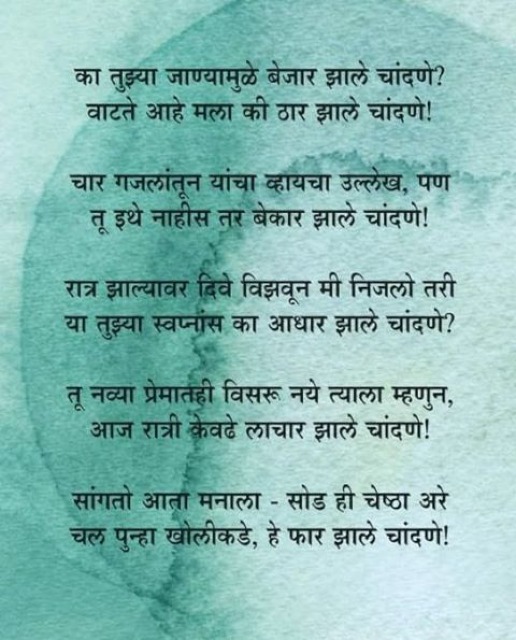 का तुझ्या जाण्यामुळे बेजार झाले चांदणे?
वाटते आहे मला की ठार झाले चांदणे!
चार गजलांतून यांचा व्हायचा उल्लेख, पण
तू इथे नाहीस तर बेकार झाले चांदणे!
रात्र झाल्यावर दिवे विझवून मी निजलो तरी
या तुझ्या स्वप्नांस का आधार झाले चांदणे?
तू नव्या प्रेमातही विसरू नये त्याला म्हणुन,
आज रात्री केवढे लाचार झाले चांदणे!
सांगतो आता मनाला - सोड ही चेष्ठा अरे
चल पुन्हा खोलीकडे, हे फार झाले चांदणे!